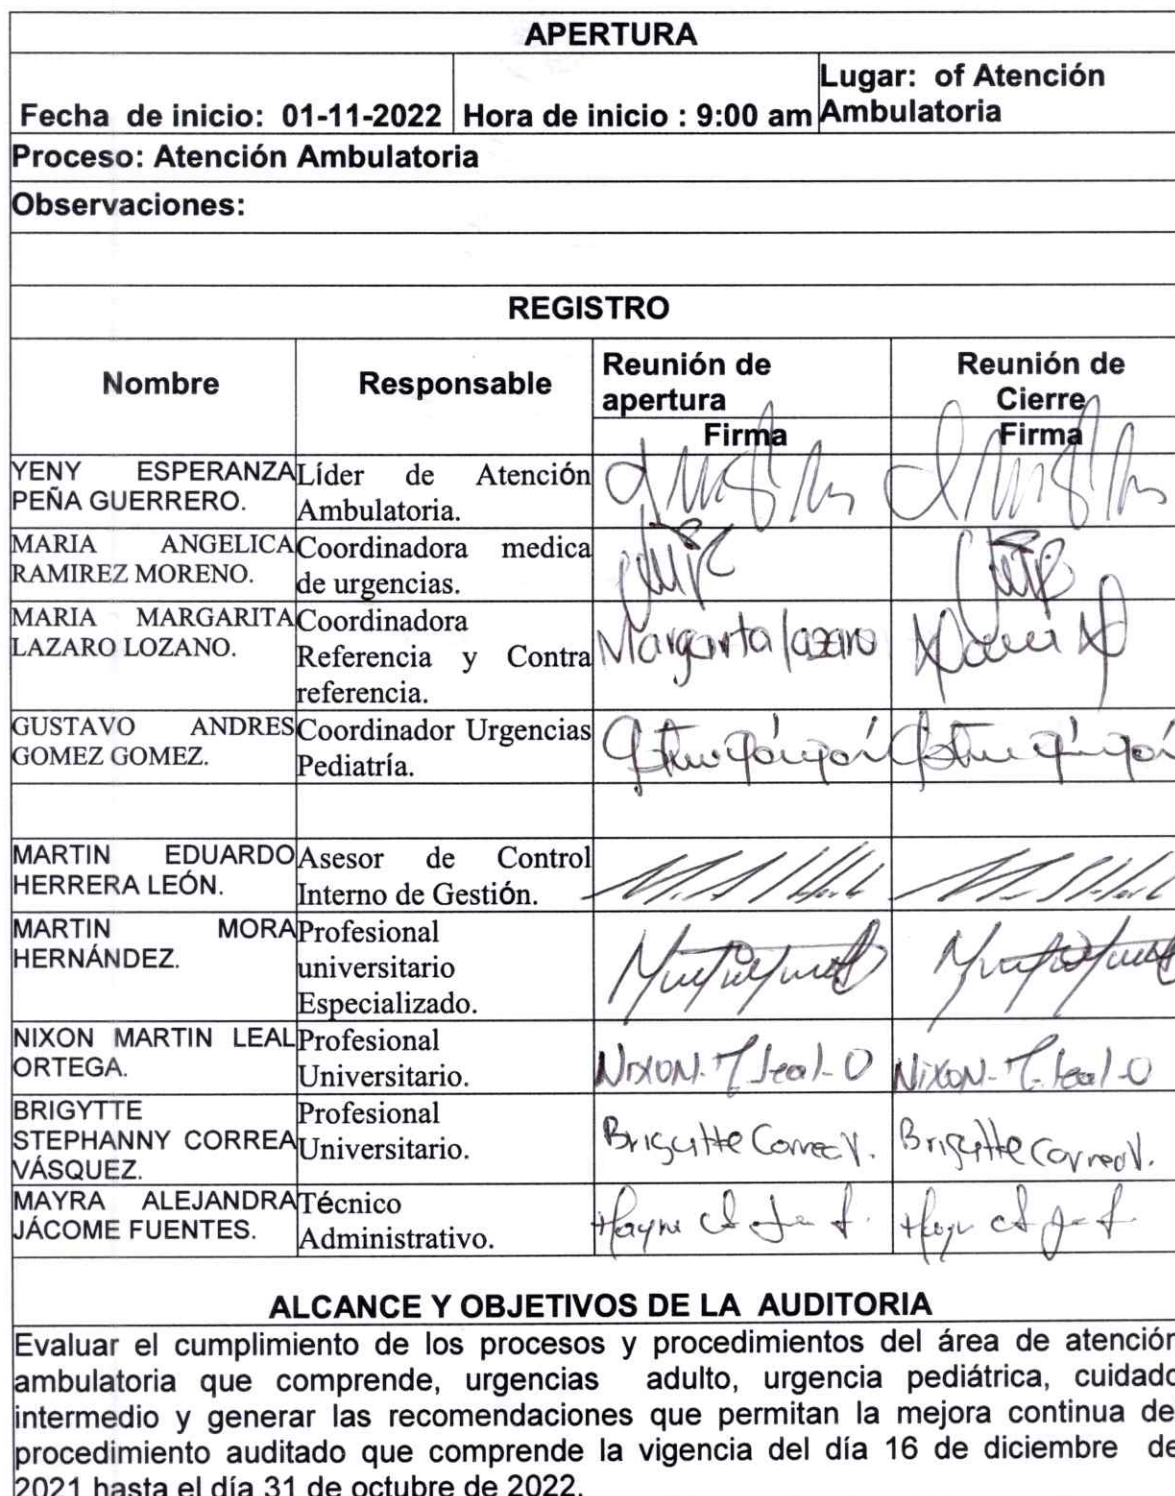 APERTURA
Fecha de inicio: 01-11-2022 Hora de inicio : 9:00 am Lugar: of Atención
Ambulatoria
Proceso: Atención Ambulatoria
Observaciones:
REGISTRO
Nombre Responsable Reunión de
apertura
Reunión de
Cierre
Firma Firma
YENY ESPERANZA
PEÑA GUERRERO.
Líder de Atención
Ambulatoria.
MARIA ANGELICA
RAMIREZ MORENO.
Coordinadora medica
de urgencias.
MARIA MARGARITA
LAZARO LOZANO.
Coordinadora
Referencia y Contra
referencia.
Margarita lazaro
GUSTAVO ANDRES
GOMEZ GOMEZ.
Coordinador Urgencias
Pediatría.
MARTIN EDUARDO
HERRERA LEÓN.
Asesor de Control
Interno de Gestión.
MARTIN MORA
HERNÁNDEZ.
Profesional
universitario
Especializado.
NIXON MARTIN LEAL
ORTEGA.
Profesional
Universitario.
Nixon. M Leal-O Nixon- M. Leal-O
BRIGYTTE
STEPHANNY CORREA
VÁSQUEZ.
Profesional
Universitario.
Brigytte Correa V. Brigytte Correa V.
MAYRA ALEJANDRA
JÁCOME FUENTES.
Técnico
Administrativo.
ALCANCE Y OBJETIVOS DE LA AUDITORIA
Evaluar el cumplimiento de los procesos y procedimientos del área de atención
ambulatoria que comprende, urgencias adulto, urgencia pediátrica, cuidado
intermedio y generar las recomendaciones que permitan la mejora continua de
procedimiento auditado que comprende la vigencia del día 16 de diciembre de
2021 hasta el día 31 de octubre de 2022.